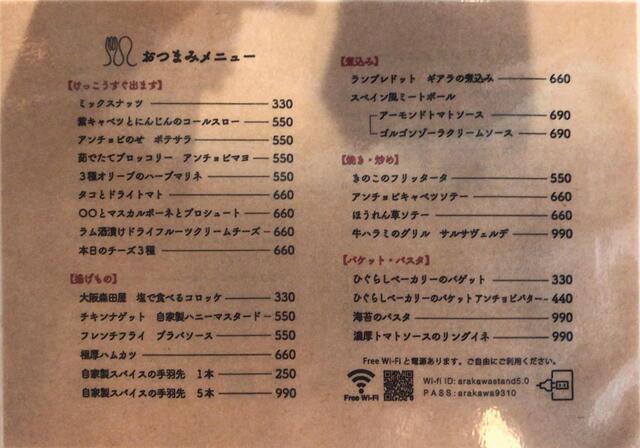 おつまみメニュー
【けっこうすぐ出ます】
ミックスナッツ 330
紫キャベツとにんじんのコールスロー 550
アンチョビのせ ポテサラ 550
茹でたてブロッコリー アンチョビマヨ 550
3種オリーブのハーブマリネ 550
タコとドライトマト 660
〇〇とマスカルポーネとプロシュート 660
ラム酒漬けドライフルーツクリームチーズ 660
本日のチーズ3種 660
【揚げもの】
大阪森田屋 塩で食べるコロッケ 330
チキンナゲット 自家製ハニーマスタード 550
フレンチフライ ブラバソース 550
極厚ハムカツ 660
自家製スパイスの手羽先 1本 250
自家製スパイスの手羽先 5本 990
【煮込み】
ランプレドット ギアラの煮込み 660
スペイン風ミートボール
アーモンドトマトソース 690
ゴルゴンゾーラクリームソース 690
【焼き・炒め】
きのこのフリッタータ 550
アンチョビキャベツソテー 660
ほうれん草ソテー 660
牛ハラミのグリル サルサヴェルデ 990
【バケット・パスタ】
ひぐらしベーカリーのバゲット 330
ひぐらしベーカリーのバケットアンチョビバター 440
海苔のパスタ 990
濃厚トマトソースのリングイネ 990
Free Wi-Fiと電源あります。ご自由にご利用ください。
Free Wi-Fi
Wi-fi ID: arakawastand5.0
PASS: arakawa9310